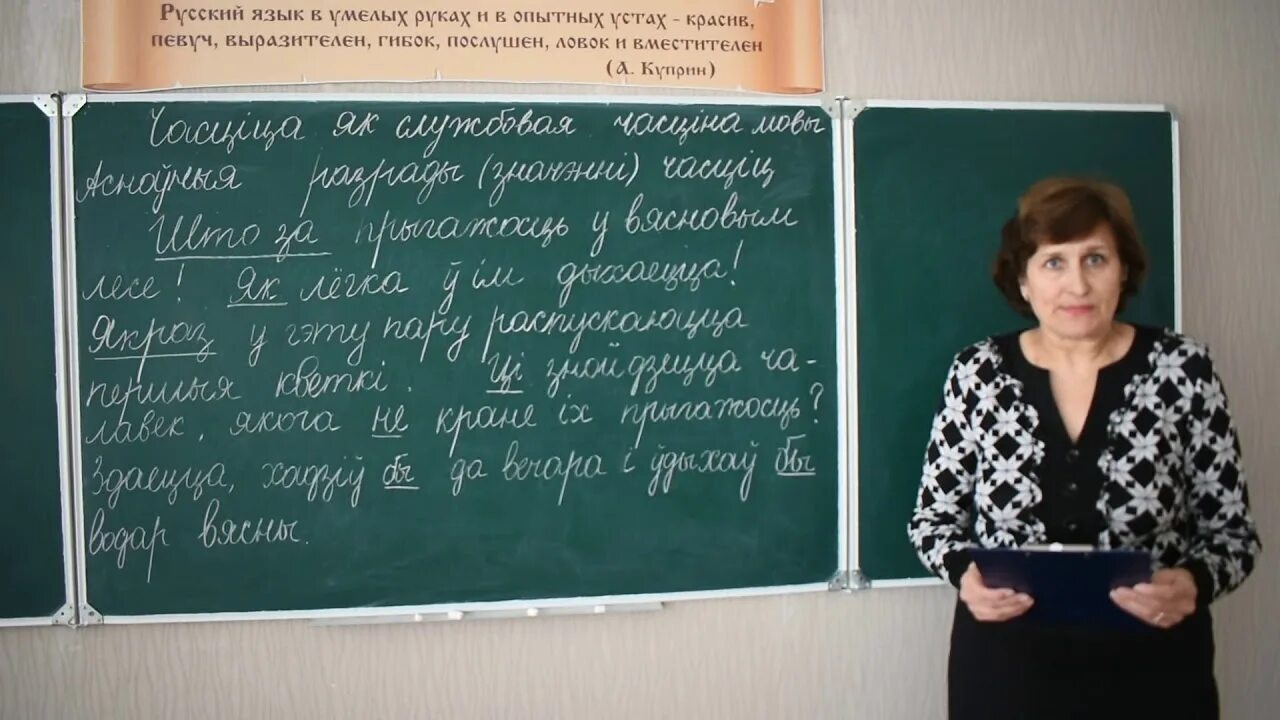 Русский язык в умелых руках и в опытных устах - красив,
певуч, выразителен, гибок, послушен, ловок и вместителен
(А. Куприн)
Часціца як службовая часціна мовы
Асноўныя разрады (значэнні) часціц
Што за прыгажосць у вясновым
лесе! Як лёгка ў ім дыхаецца!
Якраз у гэту пару распускаюцца
першыя кветкі. Ці знойдзецца ча-
лавек, якога не кране іх прыгажосць?
Здаецца, хадзіў бы да вечара і ўдыхаў бы
водар вясны.